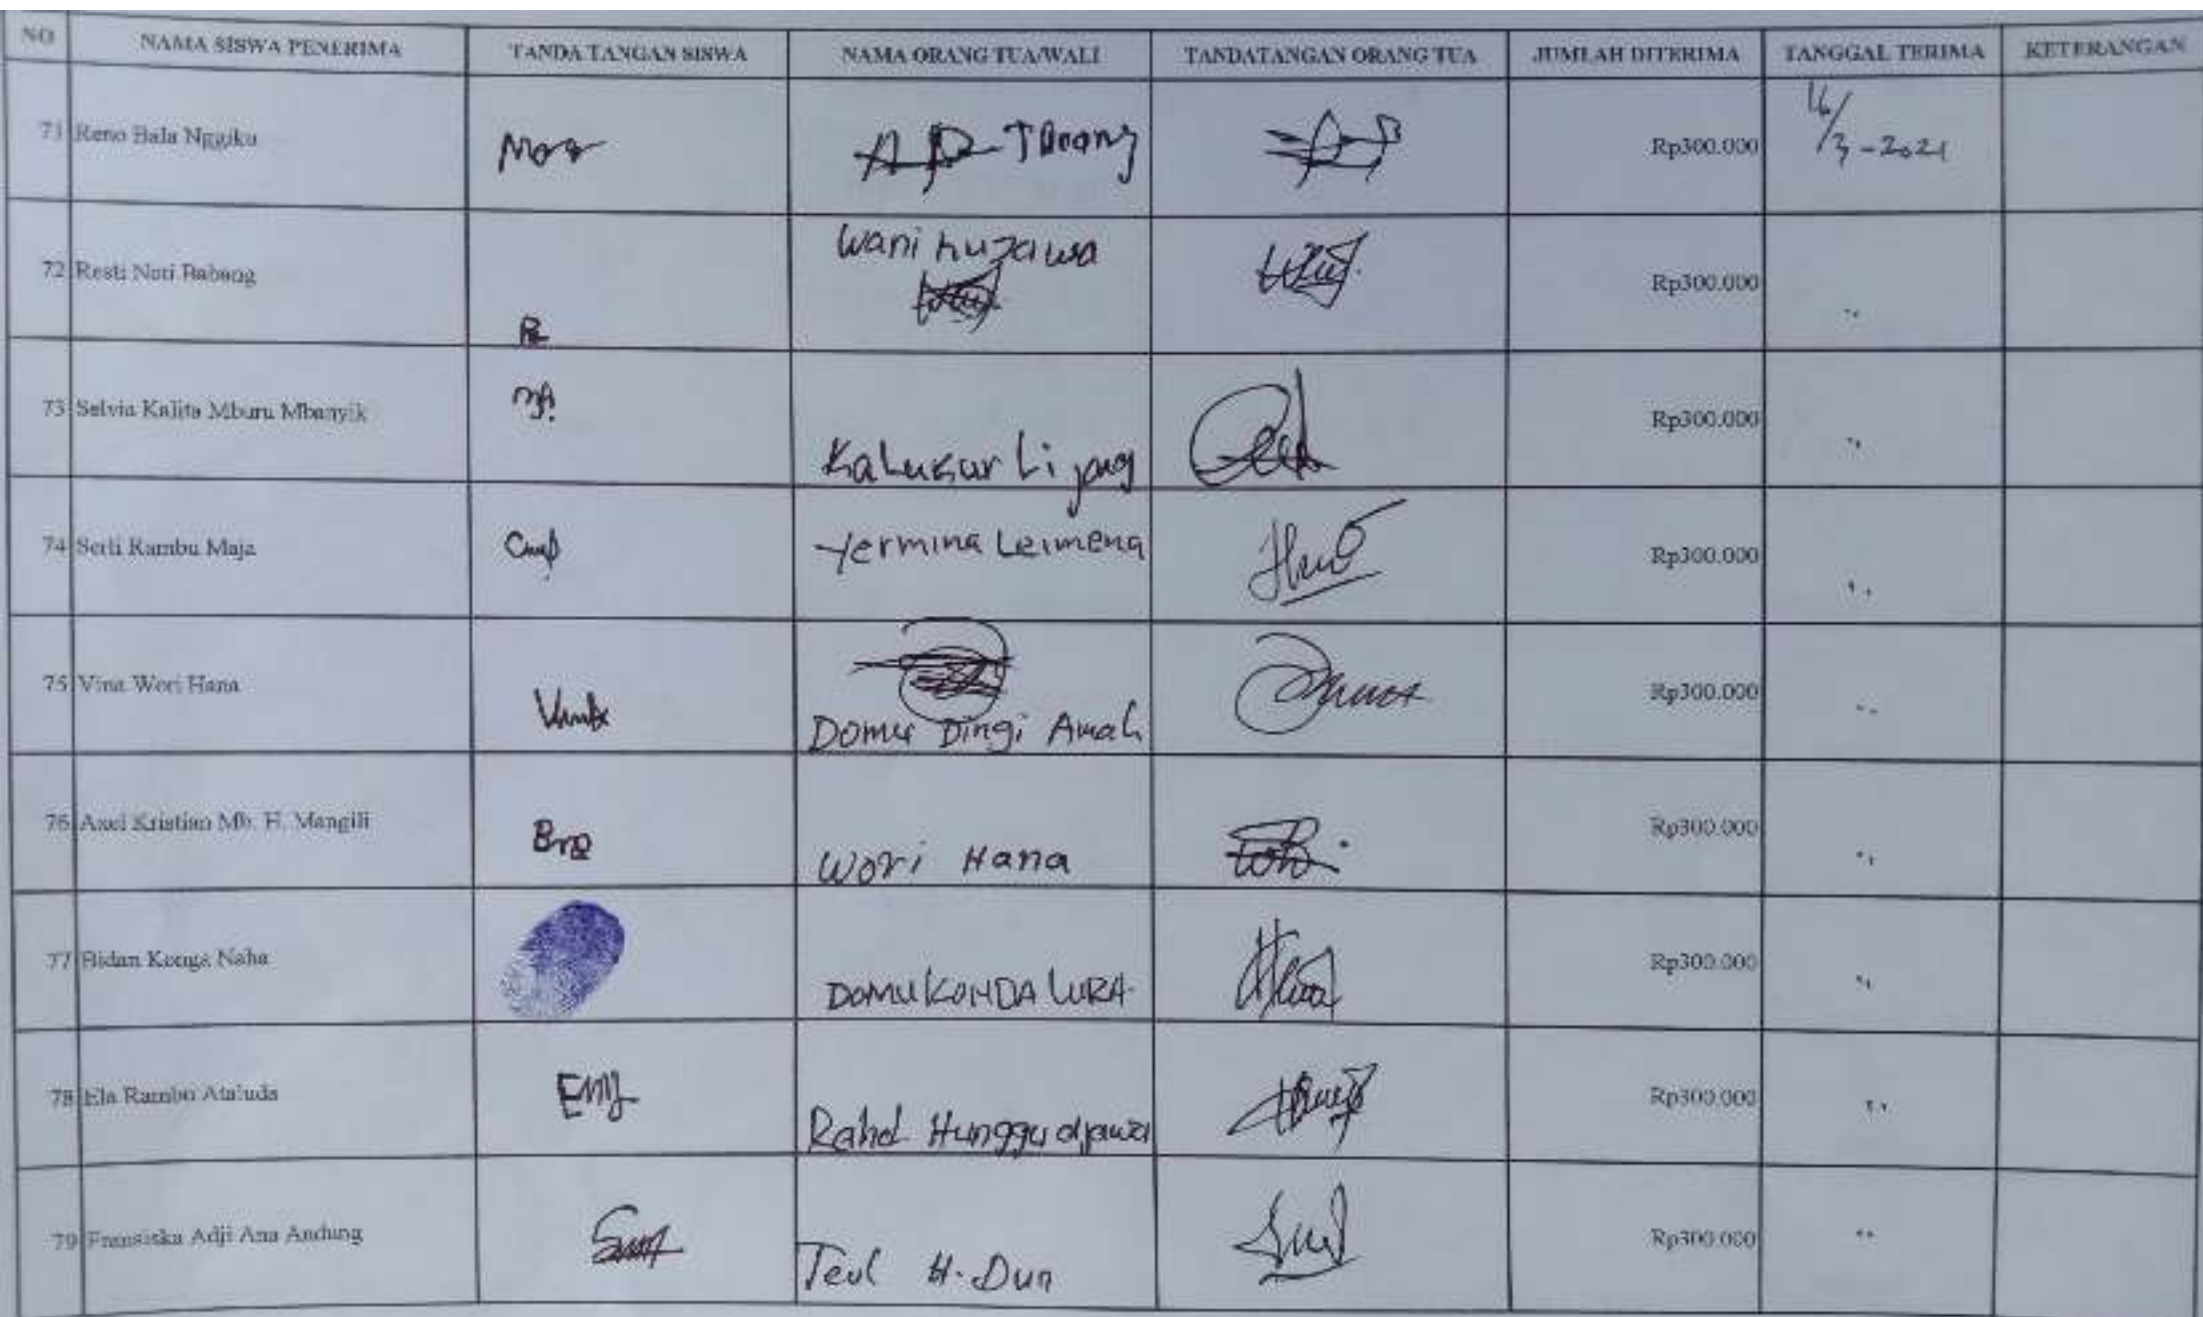 NO NAMA SISWA PENERIMA TANDA TANGAN SISWA NAMA ORANG TUA/WALI TANDATANGAN ORANG TUA JUMLAH DITERIMA TANGGAL TERIMA KETERANGAN
71 Reno Bala Nggiku Rp300.000 16/3-2021
72 Resti Noti Babang Wani Rp300.000 "
73 Selvia Kalita Mburu Mbanyik Rp300.000 "
74 Serli Rambu Maja Yermina Leimena Rp300.000 "
75 Vina Wori Hana Domu Dingi Amah Rp300.000 "
76 Axel Kristian Mb. H. Mangili Wori Hana Rp300.000 "
77 Bidan Konga Naha DOMU KONDA LURA Rp300.000 "
78 Ela Rambu Ataluda Rahel Hunggu djawa Rp300.000 "
79 Fransiska Adji Ana Andung H. Dun Rp300.000 "